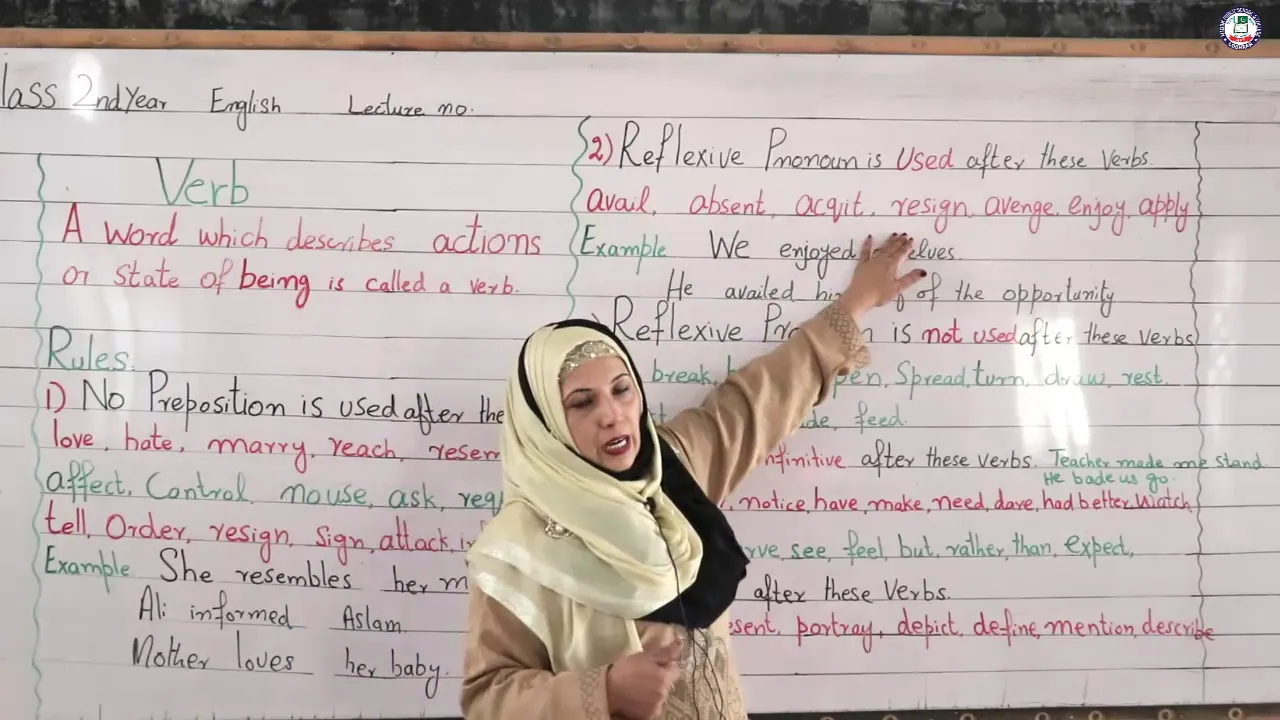 lass 2nd Year English Lecture no.
Verb
A word which describes actions
or state of being is called a verb.
Rules.
1) No Preposition is used after the
love, hate, marry, reach, resem
affect, Control, mouse, ask, req
tell, Order, resign, sign, attack, i
Example She resembles her m
Ali informed Aslam.
Mother loves her baby.
2) Reflexive Pronoun is Used after these verbs.
avail, absent, acqit, resign, avenge, enjoy, apply
Example We enjoyed elves.
He availed hi of the opportunity
Reflexive Pro n is not used after these verbs
break, pen, Spread, turn, draw, rest.
de, feed.
nfinitive after these verbs. Teacher made me stand.
He bade us go.
notice, have, make, need, dare, had better, Watch,
rve, see, feel, but, rather, than, expect,
after these Verbs.
sent, portray, depict, define, mention, describe